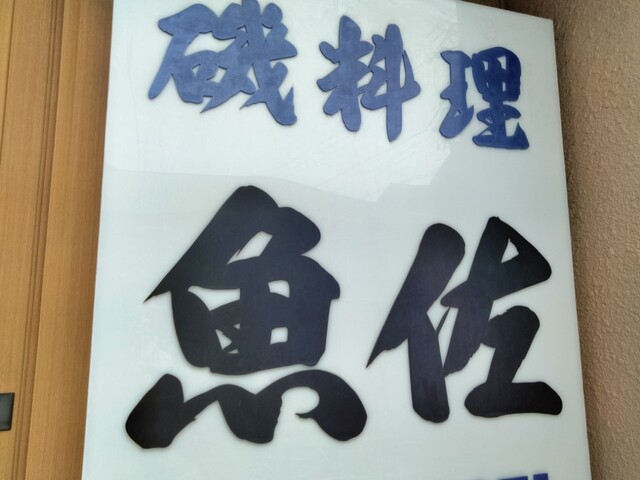 磯料理
魚佐